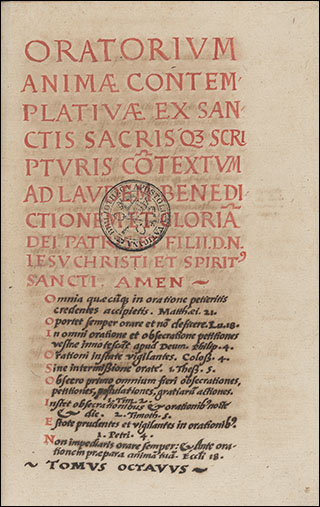 ORATORIVM
ANIMÆ CONTEM
PLATIVÆ EX SAN
CTIS SACRISQꝫ SCRI
PTVRIS CÕTEXTVM
AD LAVDEM BENEDI
CTIONEM ET GLORIÃ
DEI PATRIS ET FILII.D.N.
IESV CHRISTI ET SPIRITꝰ
SANCTI. AMEN ~
Omnia quæcũqꝫ in oratione petieritis
credentes accipietis. Matthæi. 21.
Oportet semper orare et nõ deficere. Lu. 18.
In omni oratione et obsecratione petitiones
vestræ innotescãt apud Deum. philip. 4.
Orationi instate vigilantes. Coloss. 4.
Sine intermissione orate. 1. Thess. 5.
Obsecro primo omnium fieri obsecrationes,
petitiones, postulationes, gratiarũ actiones.
1. Tim. 2.
Instet obsecrationibus & orationibꝰ nocte
& die. 2. Timoth. 5.
Estote prudentes et vigilantes in orationibꝰ.
1. Petri. 4.
Non impediaris orare semper: & Ante ora-
tionem præpara animã tuã. Eccli 18.
~ TOMVS OCTAVVS ~